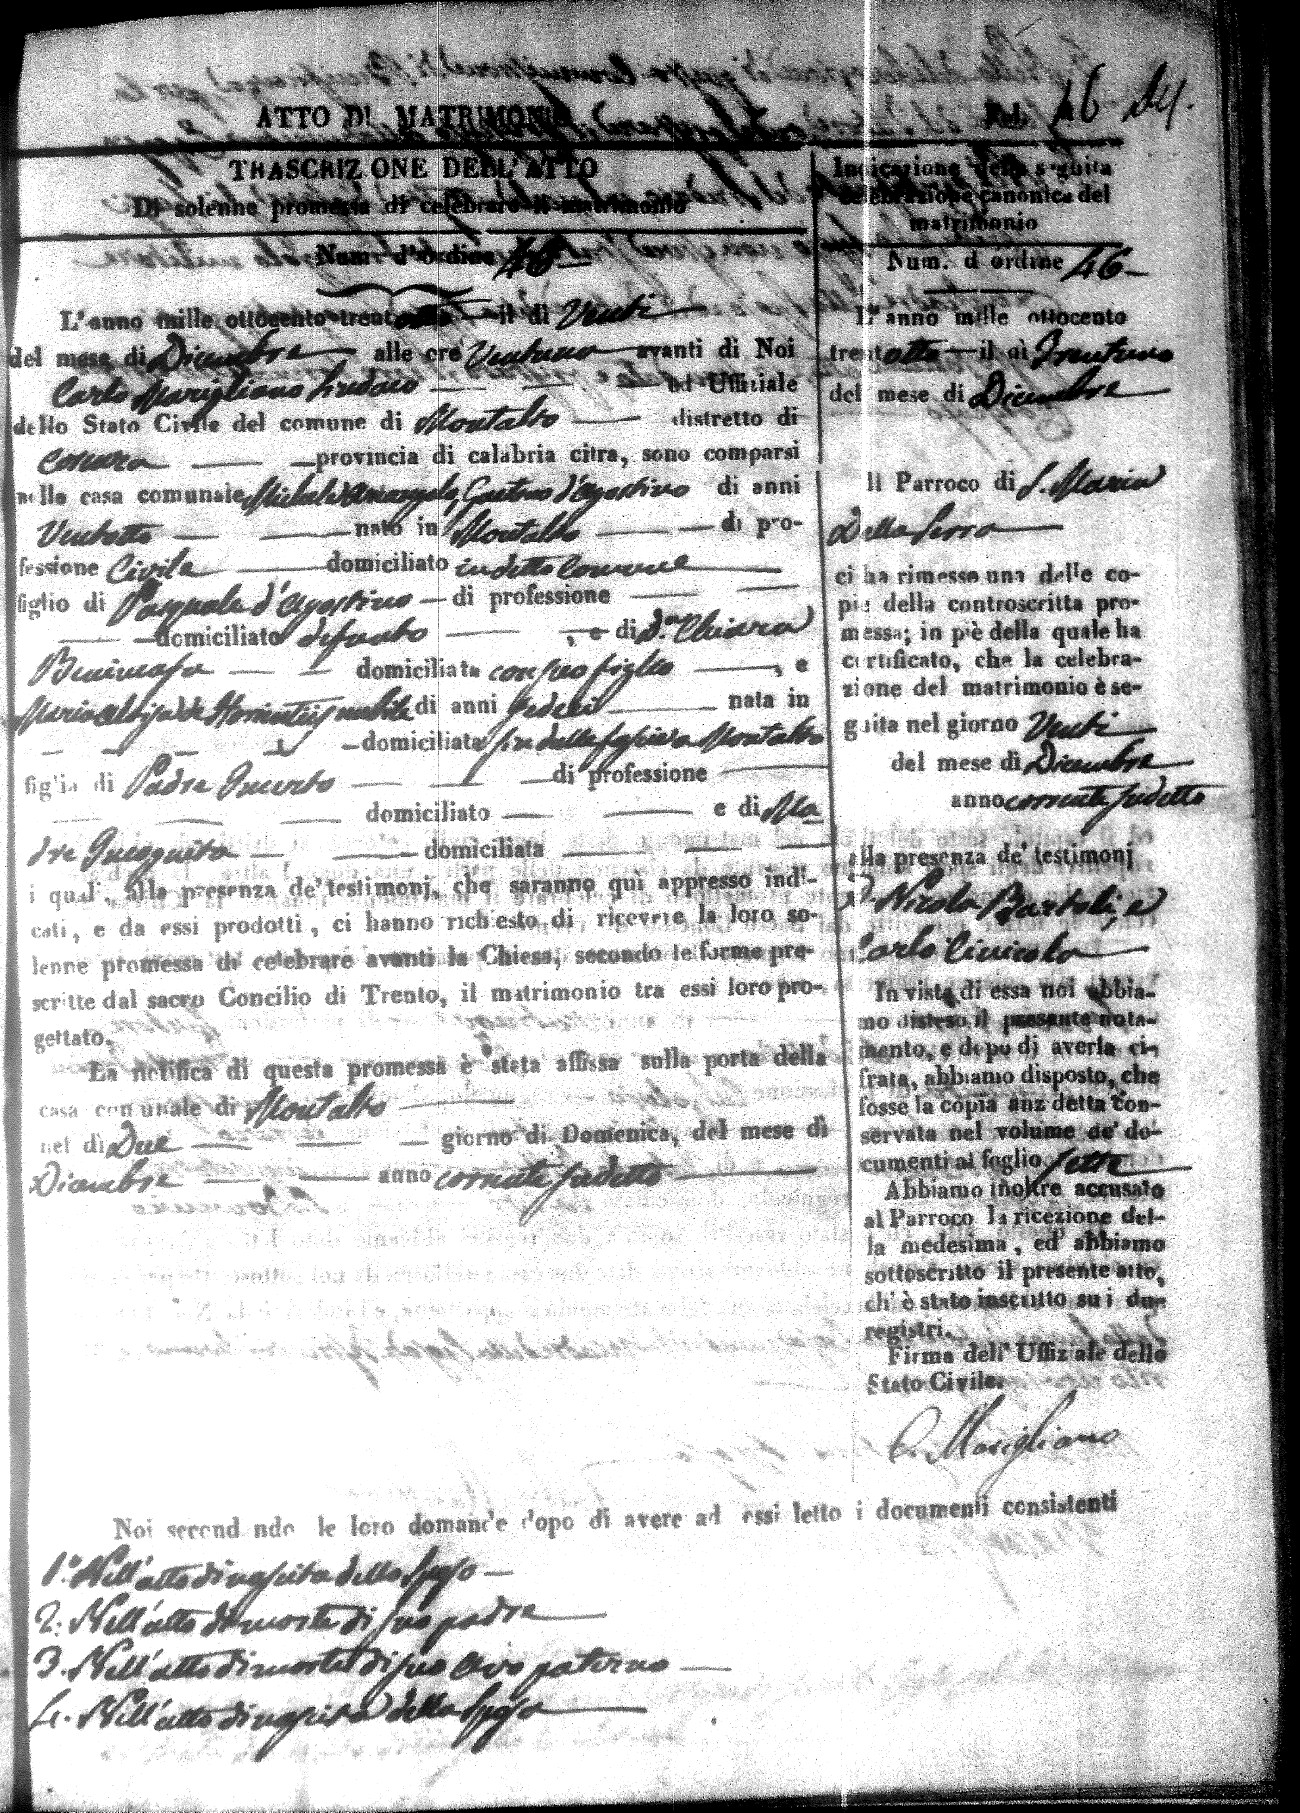 ATTO DI MATRIMONIO
46
TRASCRIZIONE DELL'ATTO
Di solenne promessa di celebrare il matrimonio
Num. d'ordine 46
L'anno mille ottocento trent otto il di Venti
del mese di Dicembre alle ore Ventuno avanti di Noi
Carlo Marigliano Sindaco ed Uffiziale
dello Stato Civile del comune di Montalto distretto di
Cosenza provincia di calabria citra, sono comparsi
nella casa comunale Michelarcangelo, Gaetano d'Agostino di anni
Ventotto nato in Montalto di pro-
fessione Civile domiciliato in detto Comune
figlio di Pasquale d'Agostino di professione
domiciliato defunto , e di D.a Chiara
domiciliata con suo figlio , e
Maria di anni Sedeci nata in
domiciliata Montalto
figlia di Padre Incerto di professione
domiciliato e di Ma
dre Incognita domiciliata
i quali, alla presenza de' testimonj, che saranno qui appresso indi-
cati, e da essi prodotti, ci hanno richiesto di ricevere la loro so-
lenne promessa di celebrare avanti la Chiesa, secondo le forme pre-
scritte dal sacro Concilio di Trento, il matrimonio tra essi loro pro-
gettato.
La notifica di questa promessa è stata affissa sulla porta della
casa comunale di Montalto
nel dì Due giorno di Domenica, del mese di
Dicembre anno corrente sudetto
Indicazione della seguita
celebrazione canonica del
matrimonio
Num. d'ordine 46
L'anno mille ottocento
trent otto il di Trentuno
del mese di Dicembre
Il Parroco di S. Maria
Della Serra
ci ha rimesso una delle co-
pie della controscritta pro-
messa; in piè della quale ha
certificato, che la celebra-
zione del matrimonio è se-
guita nel giorno Venti
del mese di Dicembre
anno corrente sudetto
alla presenza de' testimonj
D. Nicola Bartoli, e
Carlo
In vista di essa noi abbia-
mo disteso il presente nota-
mento, e dopo di averla ci-
frata, abbiamo disposto, che
fosse la copia anzidetta con-
servata nel volume de' do-
cumenti al foglio sette
Abbiamo inoltre accusato
al Parroco la ricezione del-
la medesima, ed abbiamo
sottoscritto il presente atto,
ch'è stato inscritto su i due
registri.
Firma dell'Uffiziale dello
Stato Civile.
C. Marigliano
Noi secondando le loro domande dopo di avere ad essi letto i documenti consistenti
1.o Nell'atto di nascita dello Sposo
2. Nell'atto di morte di suo padre
3. Nell'atto di morte di suo avo paterno
4. Nell'atto di nascita della Sposa